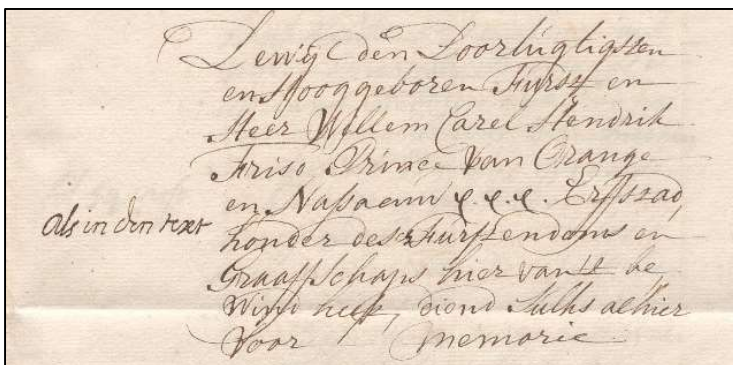 Dewijl den Doorlugtigsten
en Hooggeboren Furst en
Heer Willem Carel Hendrik
Friso, Prince van Orange
en Nassauw &.&.&. Erfstad,
als in den text houder deses Furstendoms en
Graaffschaps hier van 't be,
wind heeft, diend sulks alhier
voor memorie